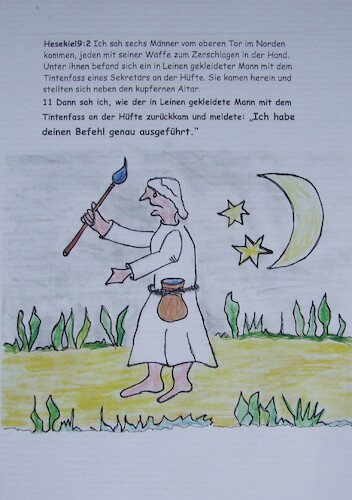 Hesekiel9:2 Ich sah sechs Männer vom oberen Tor im Norden
kommen, jeden mit seiner Waffe zum Zerschlagen in der Hand.
Unter ihnen befand sich ein in Leinen gekleideter Mann mit dem
Tintenfass eines Sekretärs an der Hüfte. Sie kamen herein und
stellten sich neben den kupfernen Altar.
11 Dann sah ich, wie der in Leinen gekleidete Mann mit dem
Tintenfass an der Hüfte zurückkam und meldete: „Ich habe
deinen Befehl genau ausgeführt.“